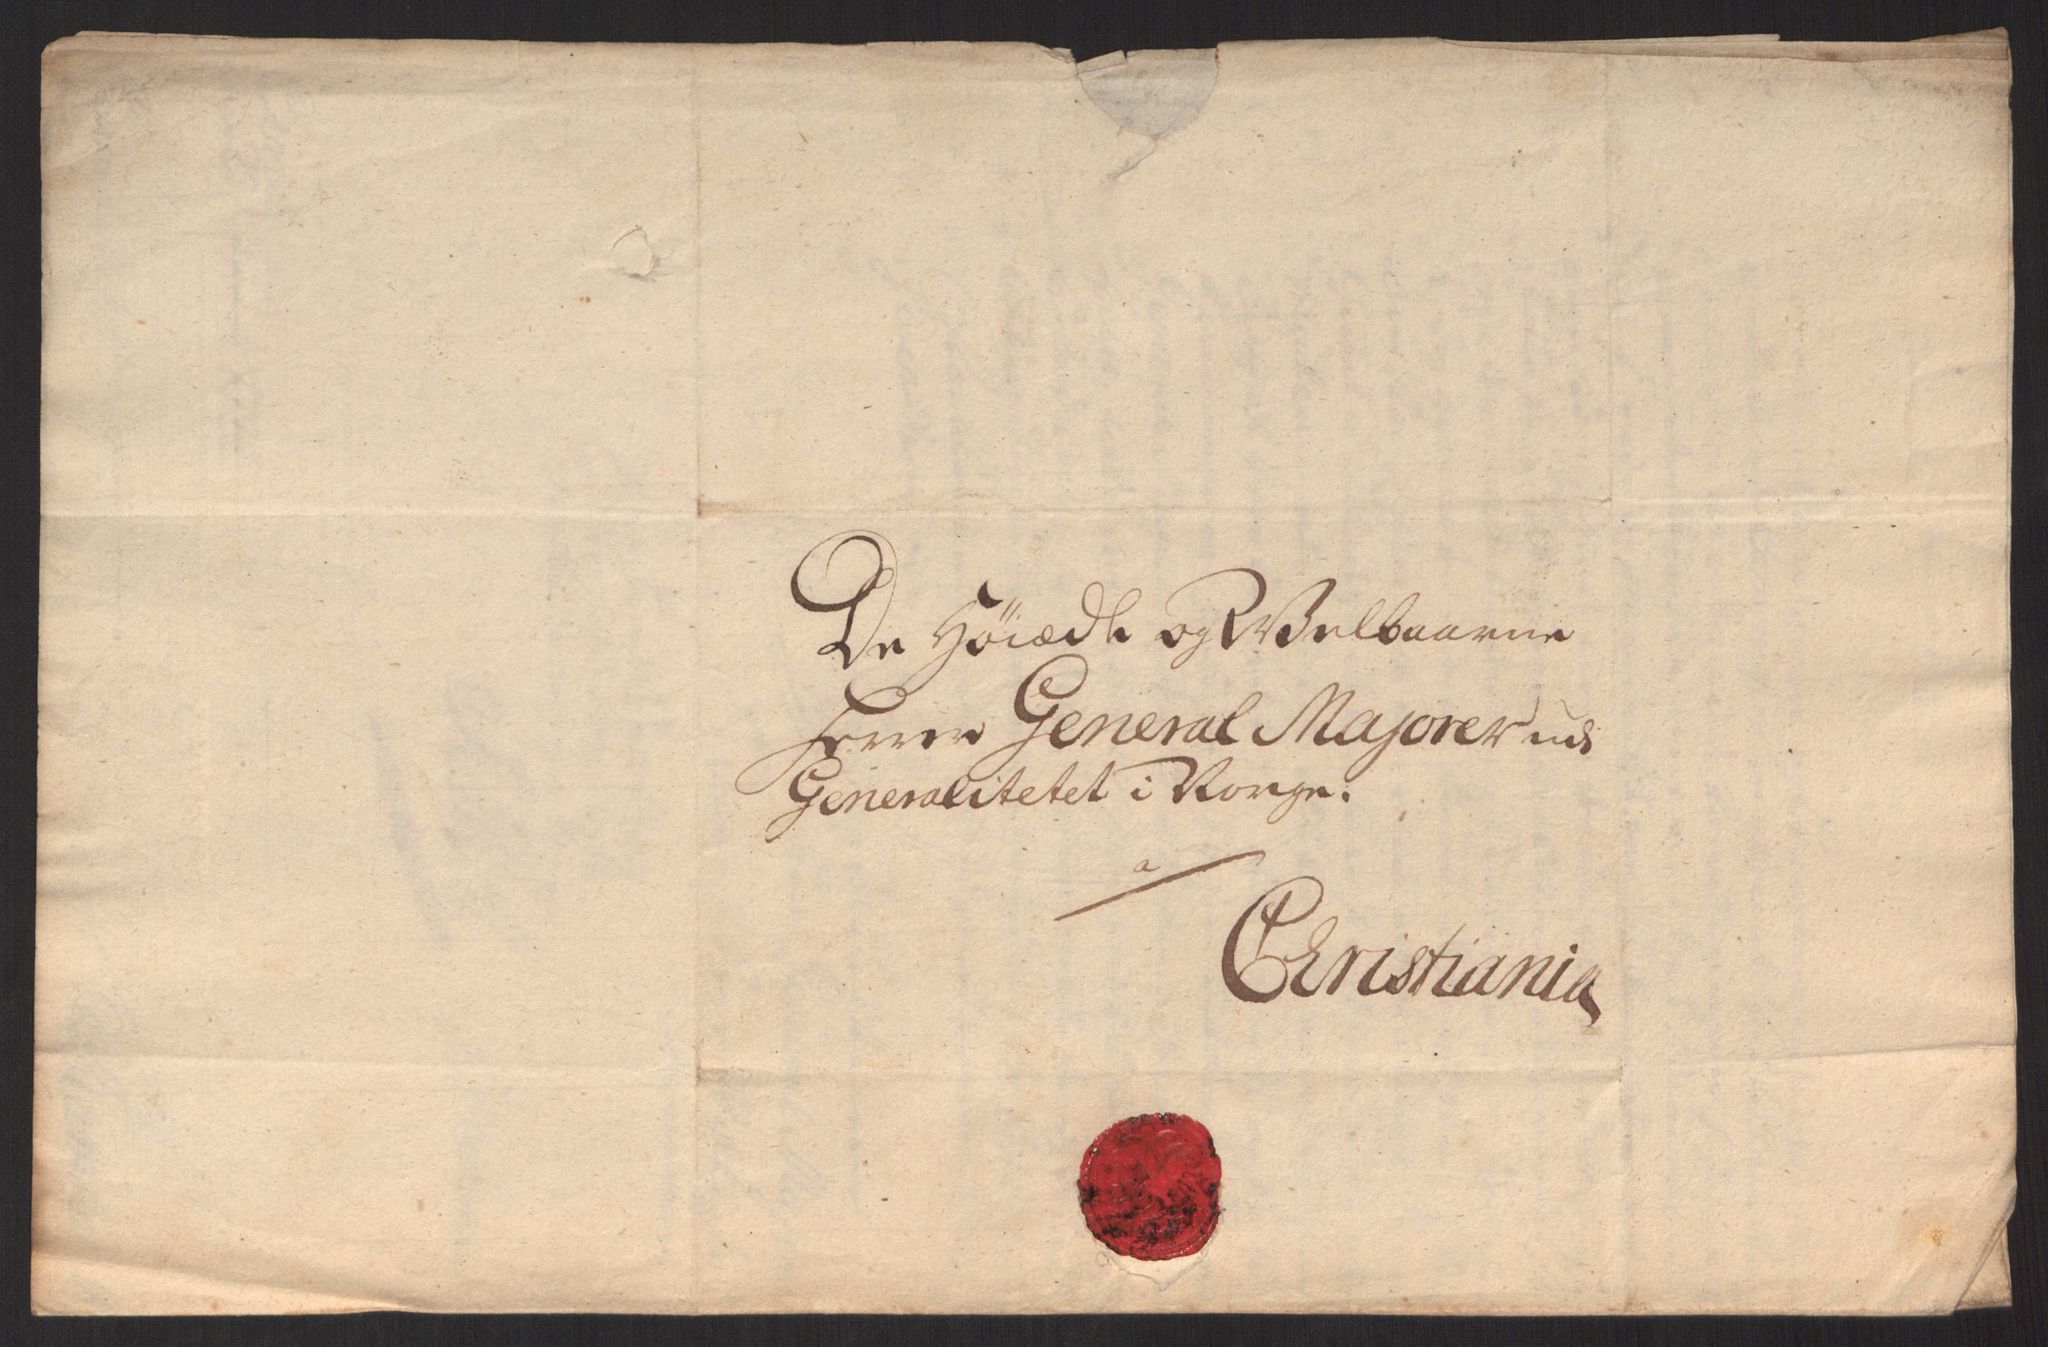 De Höiædle og Velbaarne
Herrer General Majorer udi
Generalitetet i Norge.
a
Christiania